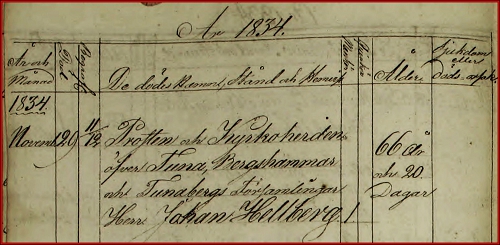 År 1834.
År och Månad
De dödes Namn, Stånd och Hemvist
Ålder
Sjukdom eller Döds-
1834
Novemb 29 11/12 Prosten och Kyrkoherden
66 år
öfver Tuna, Bergshammar
och 20
och Tunabergs Församlingar
Dagar
Herr Johan Hellberg 1